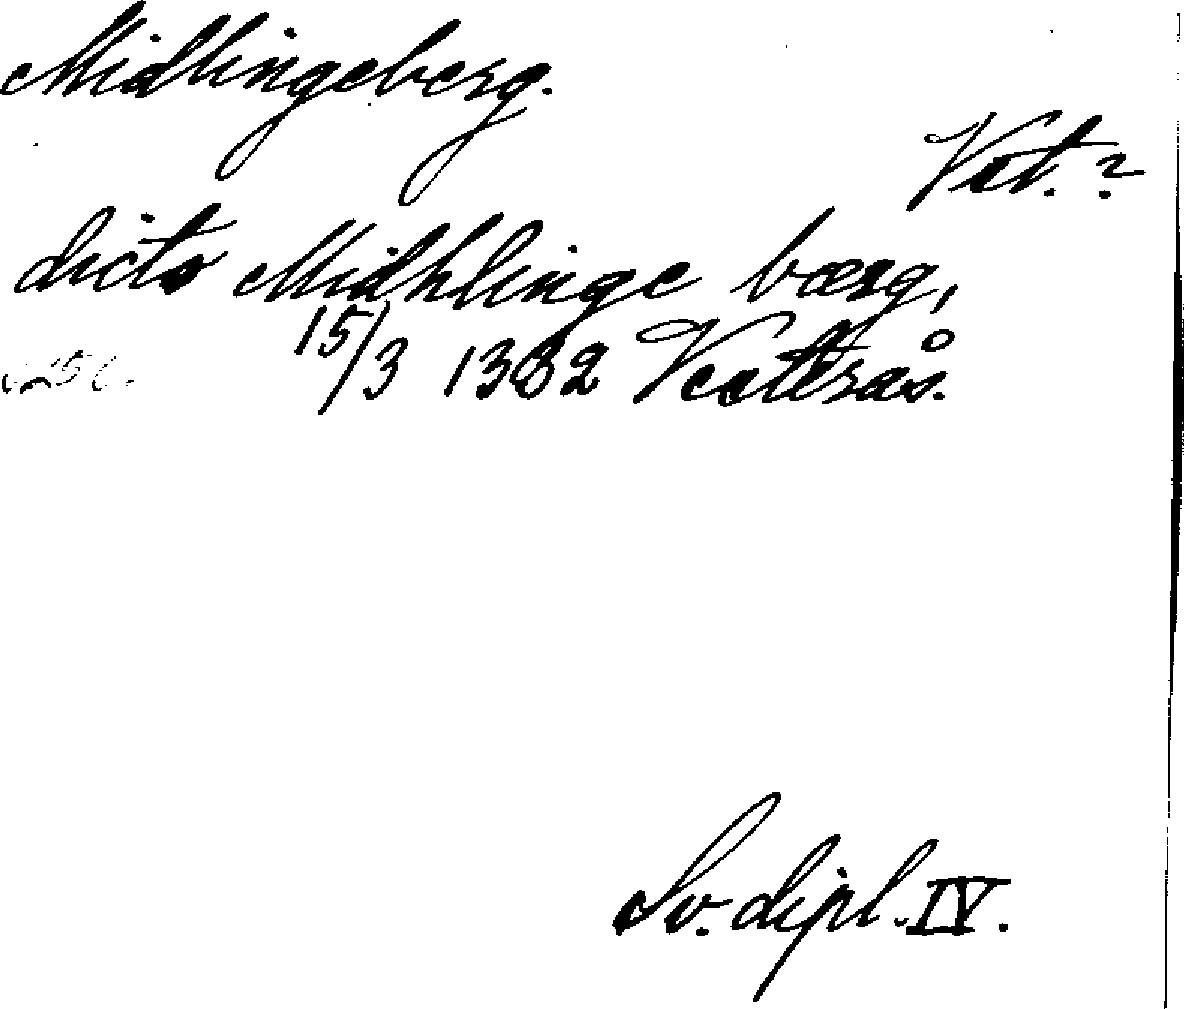 Midlingeberg.
Vät.?
dicto Midhlinge bærg,
15/3 1332 Västerås.
s. 256.
Sv. dipl. IV.